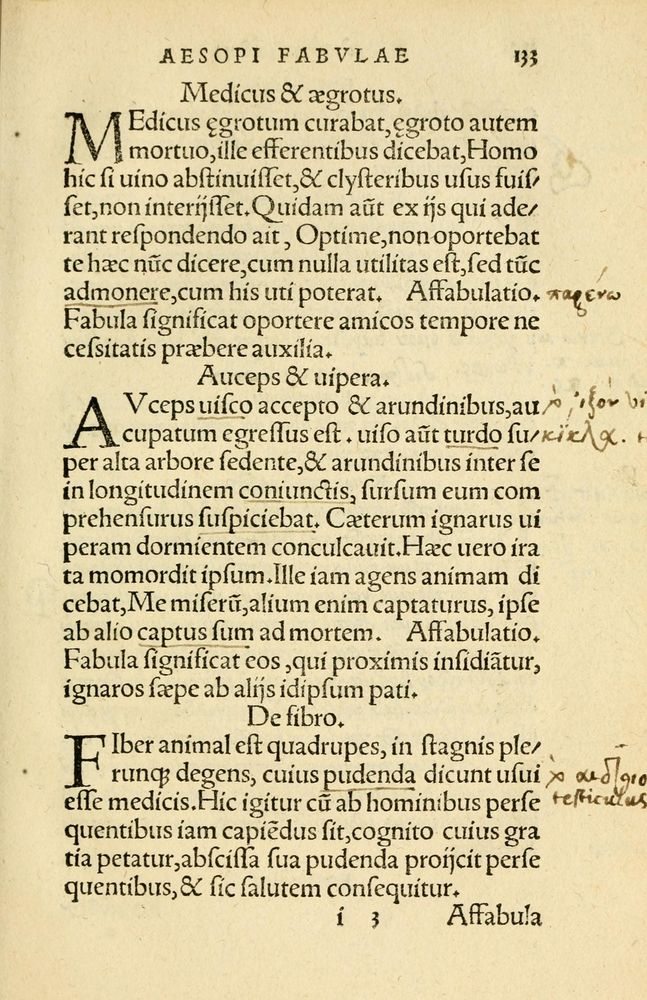 AESOPI FABVLAE 133
Medicus & ægrotus.
MEdicus ęgrotum curabat, ęgroto autem
mortuo, ille efferentibus dicebat, Homo
hic si uino abstinuisset, & clysteribus usus fuis/
set, non interijsset. Quidam aūt ex ijs qui ade/
rant respondendo ait, Optime, non oportebat
te hæc nūc dicere, cum nulla utilitas est, sed tūc
admonere, cum his uti poterat. Affabulatio.
Fabula significat oportere amicos tempore ne
cessitatis præbere auxilia.
Auceps & uipera.
AVceps uisco accepto & arundinibus, au/
cupatum egressus est. uiso aūt turdo su/
per alta arbore sedente, & arundinibus inter se
in longitudinem coniunctis, sursum eum com
prehensurus suspiciebat. Cæterum ignarus ui
peram dormientem conculcauit. Hæc uero ira
ta momordit ipsum. Ille iam agens animam di
cebat, Me miserū, alium enim captaturus, ipse
ab alio captus sum ad mortem. Affabulatio.
Fabula significat eos, qui proximis insidiātur,
ignaros sæpe ab alijs idipsum pati.
De fibro.
FIber animal est quadrupes, in stagnis ple/
runq; degens, cuius pudenda dicunt usui
testiculus
esse medicis. Hic igitur cū ab hominibus perse
quentibus iam capiēdus sit, cognito cuius gra
tia petatur, abscissa sua pudenda proijcit perse
quentibus, & sic salutem consequitur.
i 3 Affabula